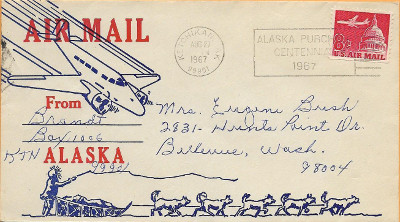 AIR MAIL
1967
99901
ALASKA PURCHASE
CENTENNIAL
1967
8c
U.S. AIR MAIL
From
Brandt
Box 1006
KTN ALASKA
99901
Mrs. Eugene Bresh
2831- Hunts Point Dr.
Bellevue, Wash.
98004